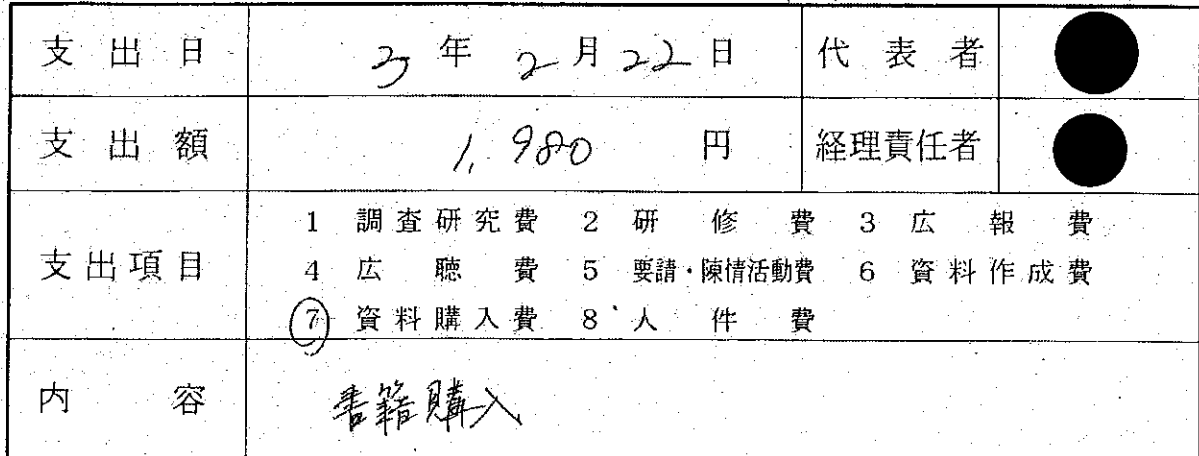 支出日 3年2月22日 代表者
支出額 1,980 円 経理責任者
支出項目
1 調査研究費 2 研修費 3 広報費
4 広聴費 5 要請・陳情活動費 6 資料作成費
7 資料購入費 8 人件費
内容 書籍購入